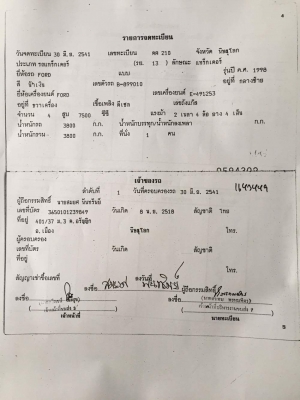 4
รายการจดทะเบียน
วันจดทะเบียน 30 มิ.ย. 2541 เลขทะเบียน ตค 210 จังหวัด พิษณุโลก
ประเภท รถแทร็กเตอร์ (รย. 13 ) ลักษณะ แทร็กเตอร์
ยี่ห้อรถ FORD แบบ รุ่นปี ค.ศ. 1998
สี น้ำเงิน เลขตัวรถ B-899010 อยู่ที่ กลางซ้าย
ยี่ห้อเครื่องยนต์ FORD เลขเครื่องยนต์ E-491253
อยู่ที่ ขวาเครื่อง เชื้อเพลิง ดีเซล เลขถังแก๊ส
จำนวน 4 สูบ 7500 ซีซี 2 เพลา 4 ล้อ ยาง 4 เส้น
น้ำหนักรถ 3800 ก.ก. น้ำหนักบรรทุก/น้ำหนักลงเพลา ก.ก.
น้ำหนักรวม 3800 ก.ก. ที่นั่ง 1 คน
เจ้าของรถ
ลำดับที่ 1 วันที่ครอบครองรถ 30 มิ.ย. 2541
ผู้ถือกรรมสิทธิ์
เลขที่บัตร 3650101239849 วันเกิด 8 พ.ย. 2518 สัญชาติ ไทย
ที่อยู่ 401/37 ม.3 ต.อรัญญิก
อ.เมือง พิษณุโลก โทร.
ผู้ครอบครอง
เลขที่บัตร วันเกิด สัญชาติ
ที่อยู่
โทร.
สัญญาเช่าซื้อเลขที่ ลงวันที่
ลงชื่อ ลงชื่อ ผู้ถือกรรมสิทธิ์
นายทะเบียน
5